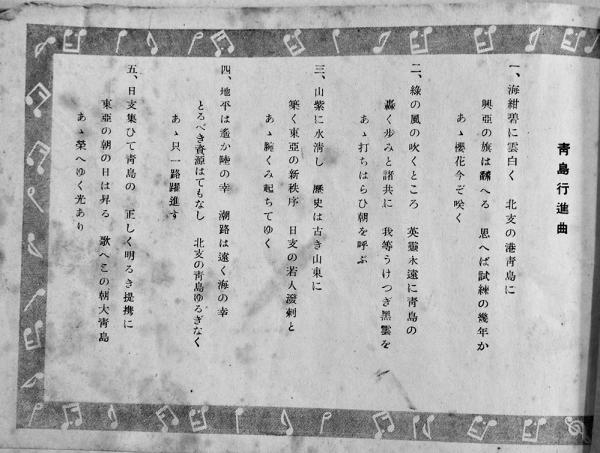 青島行進曲
一、海紺碧に雲白く　北支の港青島に
興亞の旗は飜へる　思へば試練の幾年か
あゝ櫻花今ぞ咲く
二、綠の風の吹くところ　英靈永遠に青島の
轟く歩みと諸共に　我等うけつぎ黑雲を
あゝ打ちはらひ朝を呼ぶ
三、山紫に水淸し　歷史は古き山東に
築く東亞の新秩序　日支の若人潑剌と
あゝ腕くみ起ちてゆく
四、地平は遙か陸の幸　潮路は遠く海の幸
とるべき資源はてもなし　北支の青島ゆるぎなく
あゝ只一路躍進す
五、日支集ひて青島の　正しく明るき提携に
東亞の朝の日は昇る　歌へこの朝大青島
あゝ榮へゆく光あり